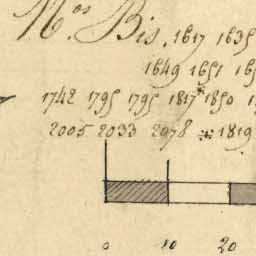 Nos Bis. 1617 1635
1649 1651 165
1742 1795 1795 1817* 1850 1
2005 2033 2078 * 1819
0 10 20